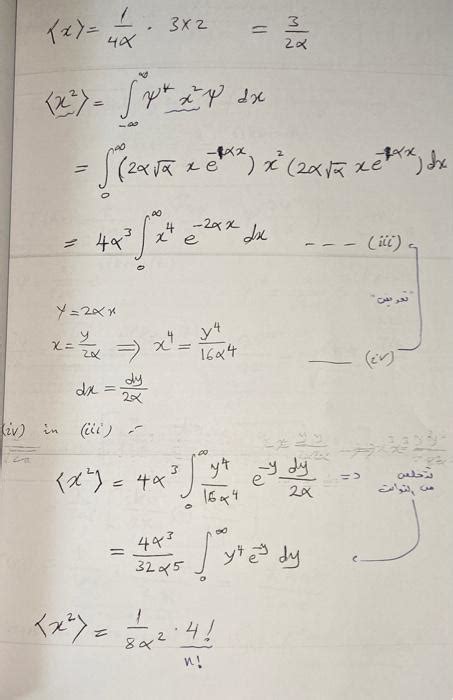 ⟨x⟩ = 1/4α · 3×2 = 3/2α
⟨x²⟩ = ∫_{-∞}^{∞} ψ* x² ψ dx
= ∫₀^∞ (2α√α x e^{-αx}) x² (2α√α x e^{-αx}) dx
= 4α³ ∫₀^∞ x⁴ e^{-2αx} dx --- (iii)
"تعويض"
y = 2αx
x = y/2α ⟹ x⁴ = y⁴/16α⁴ — (iv)
dx = dy/2α
(iv) in (iii) :-
⟨x²⟩ = 4α³ ∫₀^∞ y⁴/16α⁴ e^{-y} dy/2α <=
من الثوابت
= 4α³/32α⁵ ∫₀^∞ y⁴ e^{-y} dy
⟨x²⟩ = 1/8α² · 4!
n!